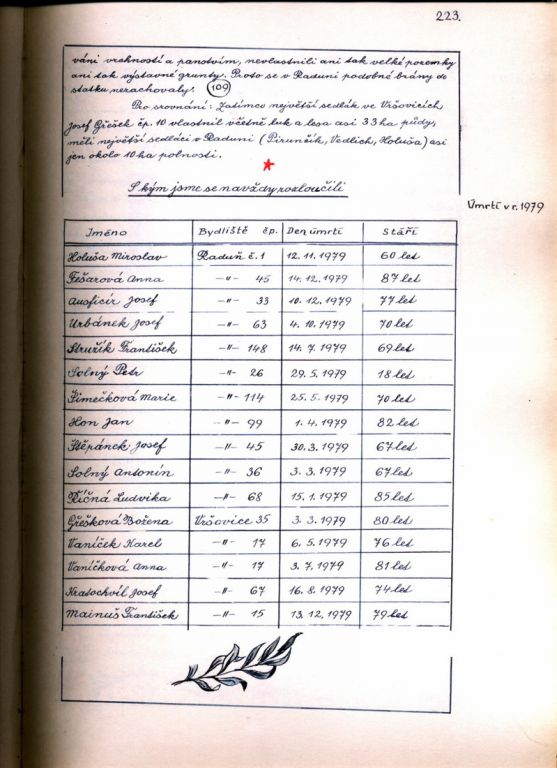 223.
váni vrchností a panstvím, nevlastnili ani tak velké pozemky
ani tak výstavné grunty. Proto se v Raduni podobné brány do
statku nerachovaly. 109
Pro srovnání: Zatímco největší sedlák ve Vršovicích,
Josef Gřešek čp. 10 vlastnil včetně luk a lesa asi 33 ha půdy,
měli největší sedláci v Raduni (Pirunčík, Vedlich, Holuša) asi
jen okolo 10 ha polností.
S kým jsme se navždy rozloučili
Úmrtí v r. 1979
Jméno Bydliště čp. Den úmrtí Stáří
Holuša Miroslav Raduň č. 1 12. 11. 1979 60 let
Fešarová Anna -"- 45 14. 12. 1979 87 let
Ausficír Josef -"- 33 10. 12. 1979 77 let
Urbánek Josef -"- 63 4. 10. 1979 70 let
Stružík František -"- 148 14. 7. 1979 69 let
Solný Petr -"- 26 29. 5. 1979 18 let
Šimečková Marie -"- 114 25. 5. 1979 70 let
Hon Jan -"- 99 1. 4. 1979 82 let
Štěpánek Josef -"- 45 30. 3. 1979 67 let
Solný Antonín -"- 36 3. 3. 1979 67 let
Říčná Ludvika -"- 68 15. 1. 1979 85 let
Gřešková Božena Vršovice 35 3. 3. 1979 80 let
Vaníček Karel -"- 17 6. 5. 1979 76 let
Vaníčková Anna -"- 17 3. 7. 1979 81 let
Kratochvíl Josef -"- 67 16. 8. 1979 74 let
Mainuš František -"- 15 13. 12. 1979 79 let